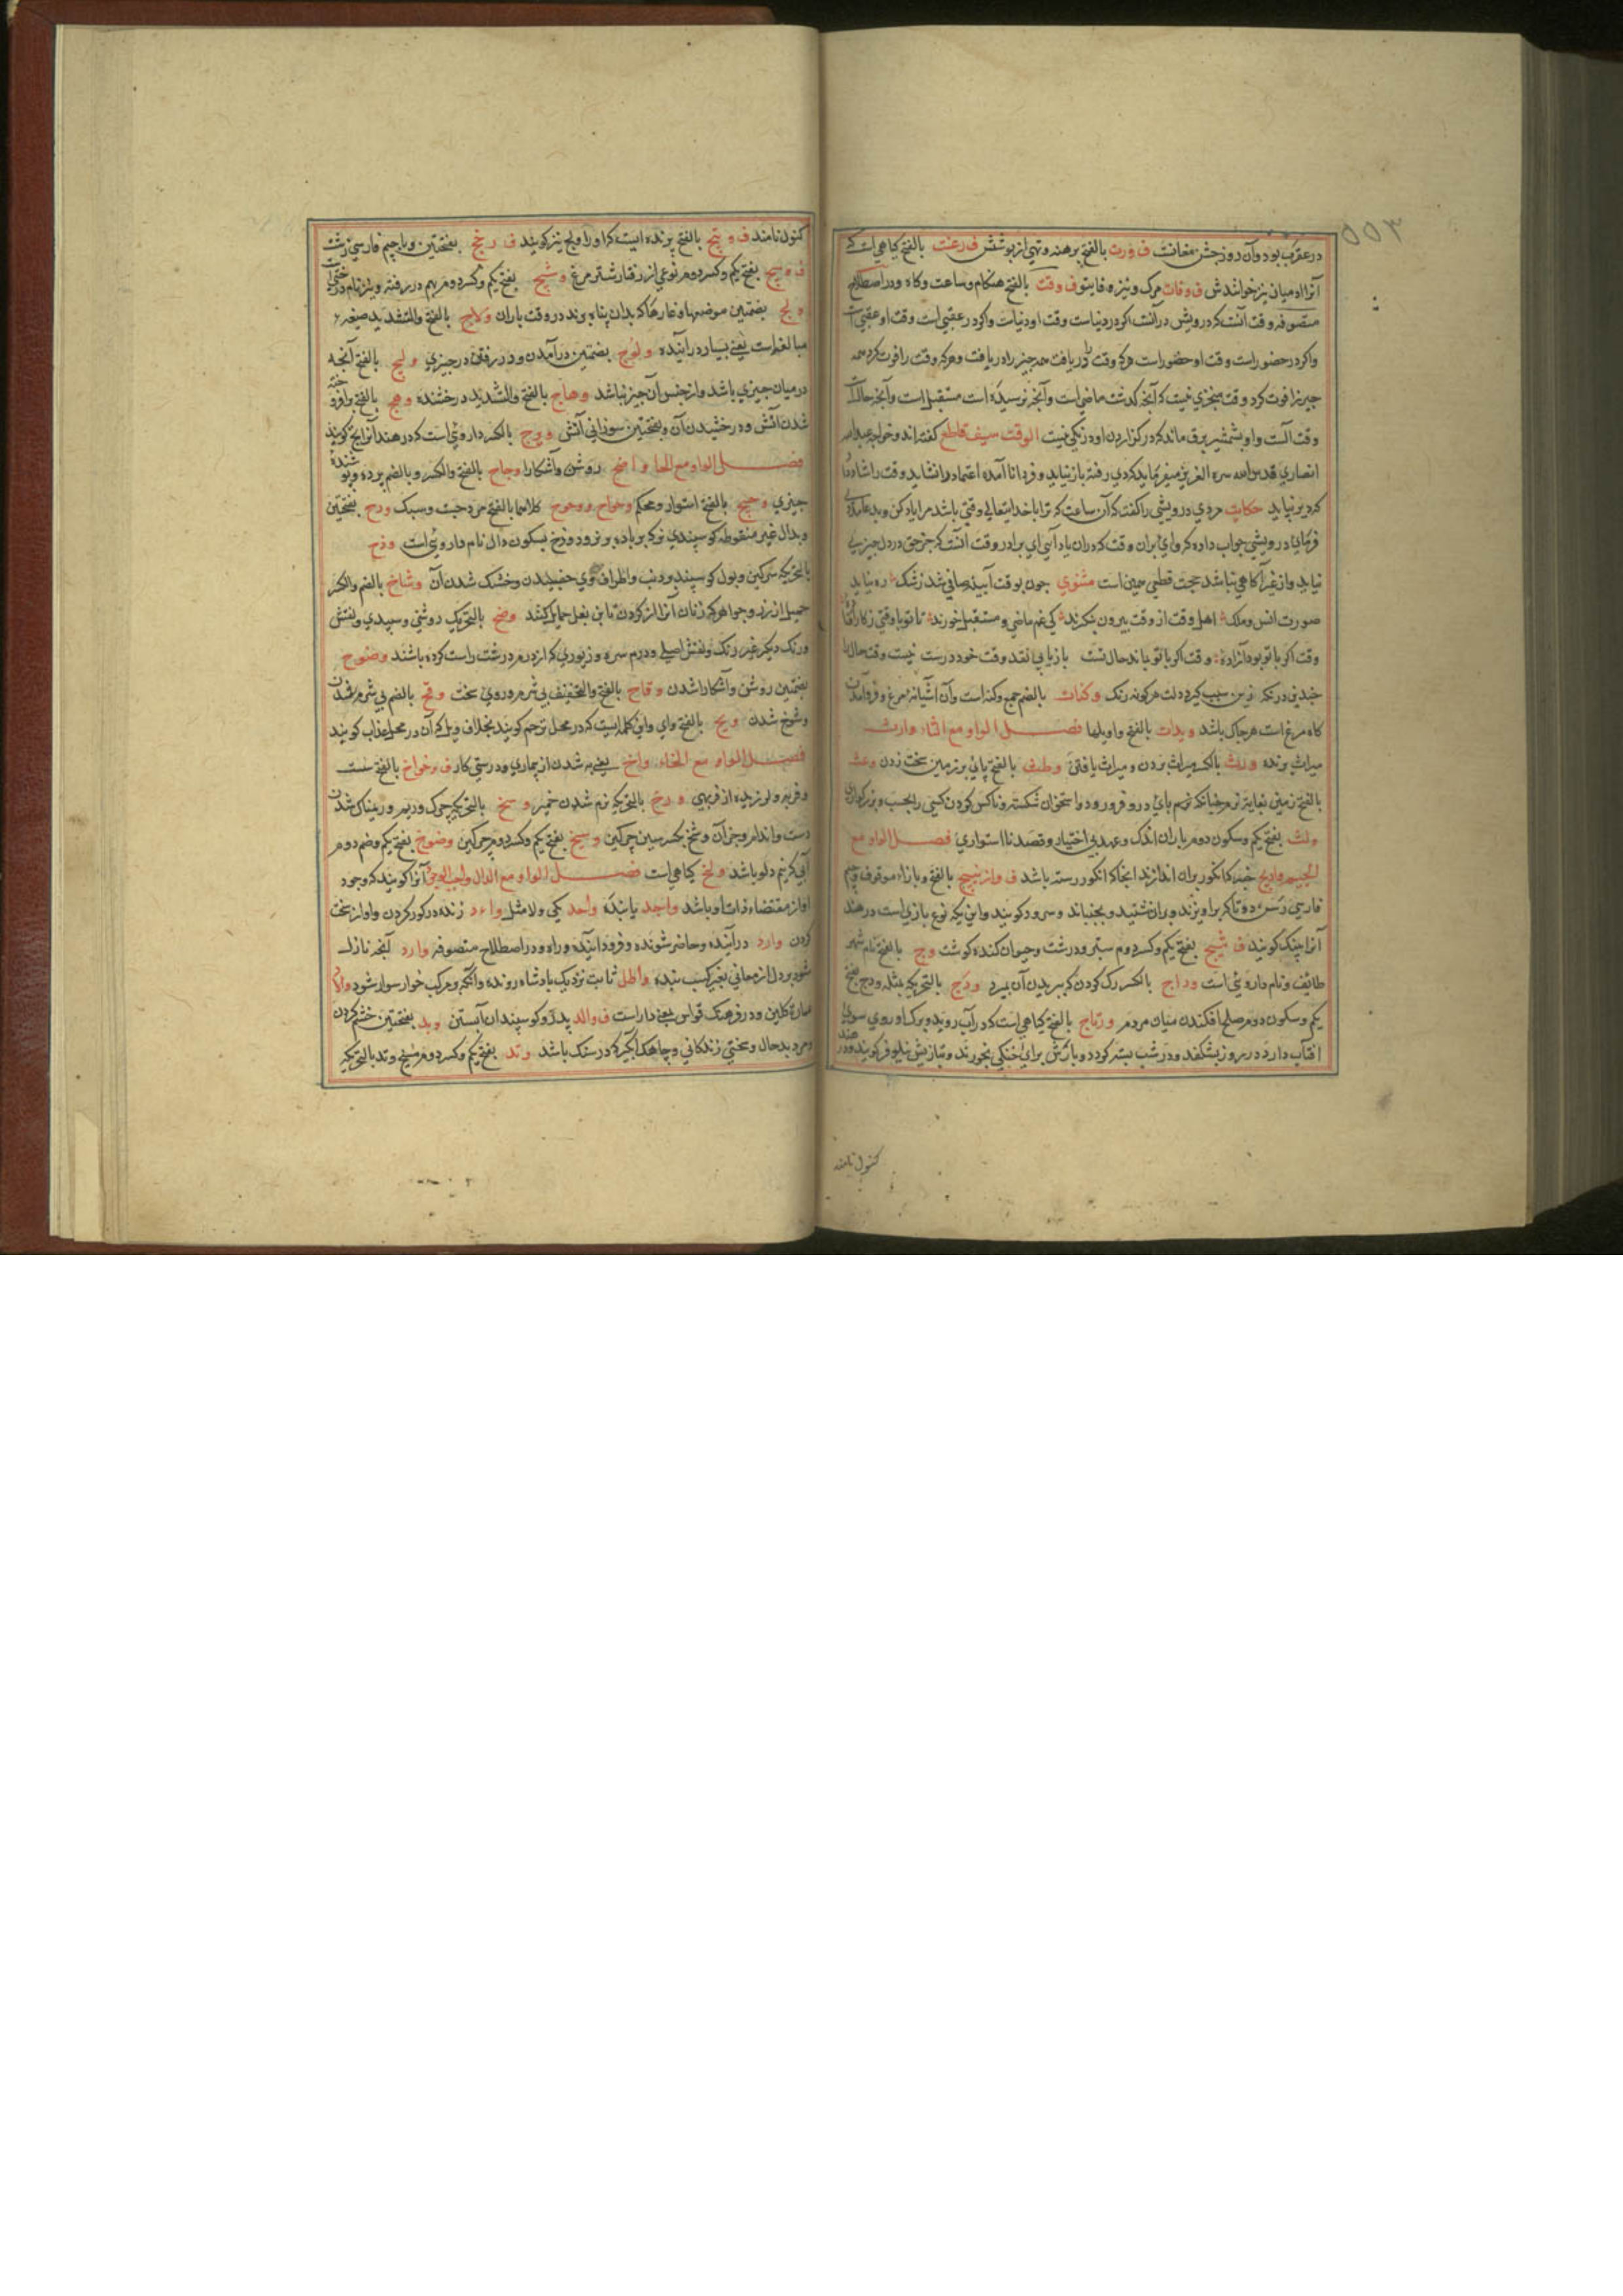 در عقرب بود و آن روز جشن مغانست ف ورت بالفتح برهنه و تهی از پوشش ف رغت بالفتح کیاهی است که
آنرا ادمیان نیز خوانندش ف وفات مرک و نیز وفاینو ف وقت بالفتح هنکام و ساعت و کاه و در اصطلاح
متصوفه وقت آنست که درویش در آنست اکر در دنیاست وقت او دنیاست و اکر در عقبی است وقت او عقبی است
و اکر در حضور است وقت او حضور است هر که وقت را دریافت همه چیز را دریافت و هر که وقت را فوت کرد همه
چیز را فوت کرد وقت جزی نیست که آنچه کذشت ماضی است و آنچه نرسیده است مستقبل است و آنچه حالست
وقت آنست و او بشمشیر برق ماند که در کزاردن او درنکی نیست الوقت سیف قاطع کفته اند و خواجه عبدالله
انصاری قدس الله سره العزیز میفرماید که دی رفته باز نیاید و فردا نا آمده اعتماد را نشاید وقت را شاد
کرد دیر نپاید حکایت مردی درویشی را کفت که آن ساعت که ترا با خدایتعالی وقتی باشد مرا یاد کن و بدعا مدد
فرمای درویش جواب داد که وای بران وقت که در ان یاد آیی ای برادر وقت آنست که جز حق در دل چیزی
نیاید و از غیر آکاهی نباشد حجت قطبی همین است مثنوی چون بوقت آیینه صافی شد ز شک ره نیابد
صورت انس و ملک اهل وقت از وقت بیرون ننکرند کی غم ماضی و مستقبل خورند تا تو با وقتی ز کار
وقت اکر با تو بود آزاده وقت اکر با تو باند حال تست باز یابی نقد وقت خود درست نیست وقت حال
کاه مرغ است هر جا که باشد ویدات بالفتح واویلها فصل الواو مع الثاء وارث
میراث برنده ورث بالکسر میراث بردن و میراث یافتن وطث بالفتح پای بر زمین سخت زدن وعث
بالفتح زمینی بغایت نرم چنانکه نرم پای درو فرو رود و استخوان شکسته و ناکس کردن کسی را بحسب و بزرکواری
ولث بفتح یکم و سکون دوم باران اندک و عهد بی اختیار و قصد نا استواری فصل الواو مع
الجیم وادیج خنبه که انکور بران اندازند انجا که انکور رسته باشد ف وازنیج بالفتح و با زاء موقوف و جیم
فارسی رسن دوتا که بر اویزند و بران نشینند و بجنبانند و سرود کویند و این یک نوع بازی است در هند
آنرا پینک کویند ف وشیج بفتح یکم و کسر دوم ستبر و درشت و حیوان کنده کوشت وج بالفتح نام شهر
طائف و نام داروئی است وداج بالکسر رک کردن که ببریدن آن بمیرد ودج بالتحریک مثله ودج بفتح
یکم و سکون دوم صلح افکندن میان مردم ورتاج بالفتح کیاهی است که در آب روید و برک او روی سوی
افتاب دارد در روز بشکفد و در شب بسته کردد و بارش برای خنکی بخورند و بتازیش نیلوفر کویند و در هند
کنول نامند
کنول نامند ف ورتیج بالفتح پرنده ایست که او را ولج نیز کویند ف وریخج بفتحتین و با جیم فارسی زشت
ف وسیج بفتح یکم و کسر دوم نوعی از رفتار شتر مرغ وشیج بفتح یکم و کسر دوم بهم در رفته و نیز نام درختی است
ولج بضمتین موضعها و غارها که بدان پناه برند در وقت باران ولاج بالفتح والتشدید صیغه
مبالغه است یعنی بسیار در آینده ولوج بضمتین در آمدن و در رفتن در چیزی ولیج بالفتح آنچه
در میان چیزی باشد و از جنس آن چیز نباشد وهاج بالفتح والتشدید درخشنده وهج بالفتح برافروخته
شدن آتش و درخشیدن آن و بفتحتین سوزانی آتش ویج بالکسر داروئی است که در هند آنرا بچ کویند
فصل الواو مع الحاء واضح روشن و آشکارا وجاح بالفتح والکسر و بالضم پرده و پوشنده
چیزی وحیح بالفتح استوار و محکم وحواح ووحوح کلاهما بالفتح مرد چست و سبک ودح بفتحتین
وبدال غیر منقوطه کوسپندی نر که بر باده بر نرود وذح بسکون دال نام داروئی است وذح
بالتحریک سرکین و بول کوسپند و دنب و اطراف وی چفسیدن و خشک شدن آن وشاح بالضم والکسر
حمیل از زر و جواهر که زنان آنرا از کردن تا بن بغل حمایل کنند وضح بالتحریک روشنی و سپیدی و نقش
و رنک دیکر غیر رنک و نقش اصلی و درم سره و زیوری که از درم درشت راست کرده باشند وضوح
بضمتین روشن و آشکارا شدن وقاح بالفتح والتخفیف بی شرم و روی سخت وقح بالضم بی شرم شدن
و شوخ شدن ویح بالفتح وای وای کلمه ایست که در محل ترحم کویند بخلاف ویل که آن در محل عذاب کویند
فصل الواو مع الخاء واخ یعنی به شدن از بیماری و درستی کار ف وخواخ بالفتح سست
و فربه و لرزیده از فربهی ورخ بالتحریک نرم شدن خمیر وسخ بالتحریک چرک و دیم و ریمناک شدن
دست و اندام و جز آن وسخ بکسر سین چرکین وسیخ بفتح یکم و کسر دوم چرکین وضوخ بفتح یکم و ضم دوم
آبی که نیم دلو باشد ولخ کیاهی است فصل الواو مع الدال واجب الوجود آنرا کویند که وجود
او از مقتضاء ذات او باشد واجد یابنده واحد یکی و لا مثل واءد زنده در کور کردن و اواز سخت
کردن وارد در آینده و حاضر شونده و فرود اینده و راه و در اصطلاح متصوفه وارد آنچه نازل
شود بر دل از معانی بغیر کسب بنده واطد ثابت نزدیک پادشاه رونده و آنکه بر مرکب خوار سوار شود
کلین و در فرهنک قواس یعنی دار است ف والد پدر و کوسپندان آبستن وبد بفتحتین خشم کردن
و مرد بدحال و سختی زندکانی و چاهک آبکیر که در سنک باشد وتد بفتح یکم و کسر دوم میخ وتد بالتحریک